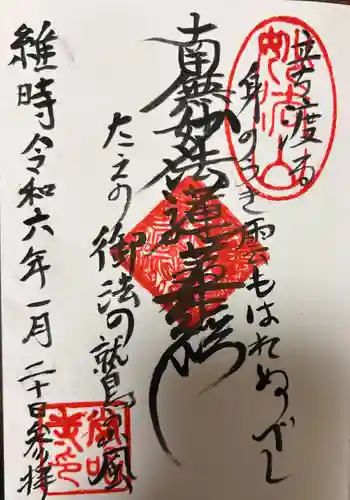 世を渡る
身のうき雲もはれぬべし
南無妙法蓮華経
たえの御法の鷲の山風
維時令和六年一月二十日参拝
妙法山